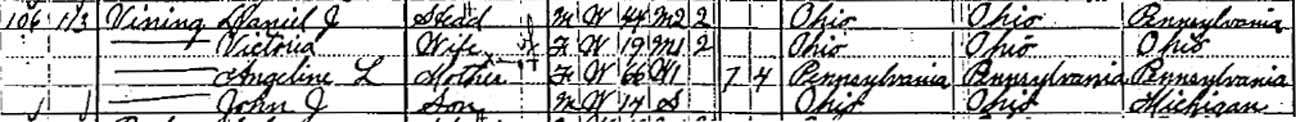 106 113 Vining Daniel J Head M W 44 M2 2 Ohio Ohio Pennsylvania
— Victoria Wife F W 19 M1 2 Ohio Ohio Ohio
— Angeline L Mother F W 66 Wd 7 4 Pennsylvania Pennsylvania Pennsylvania
— John J Son M W 14 S Ohio Ohio Michigan